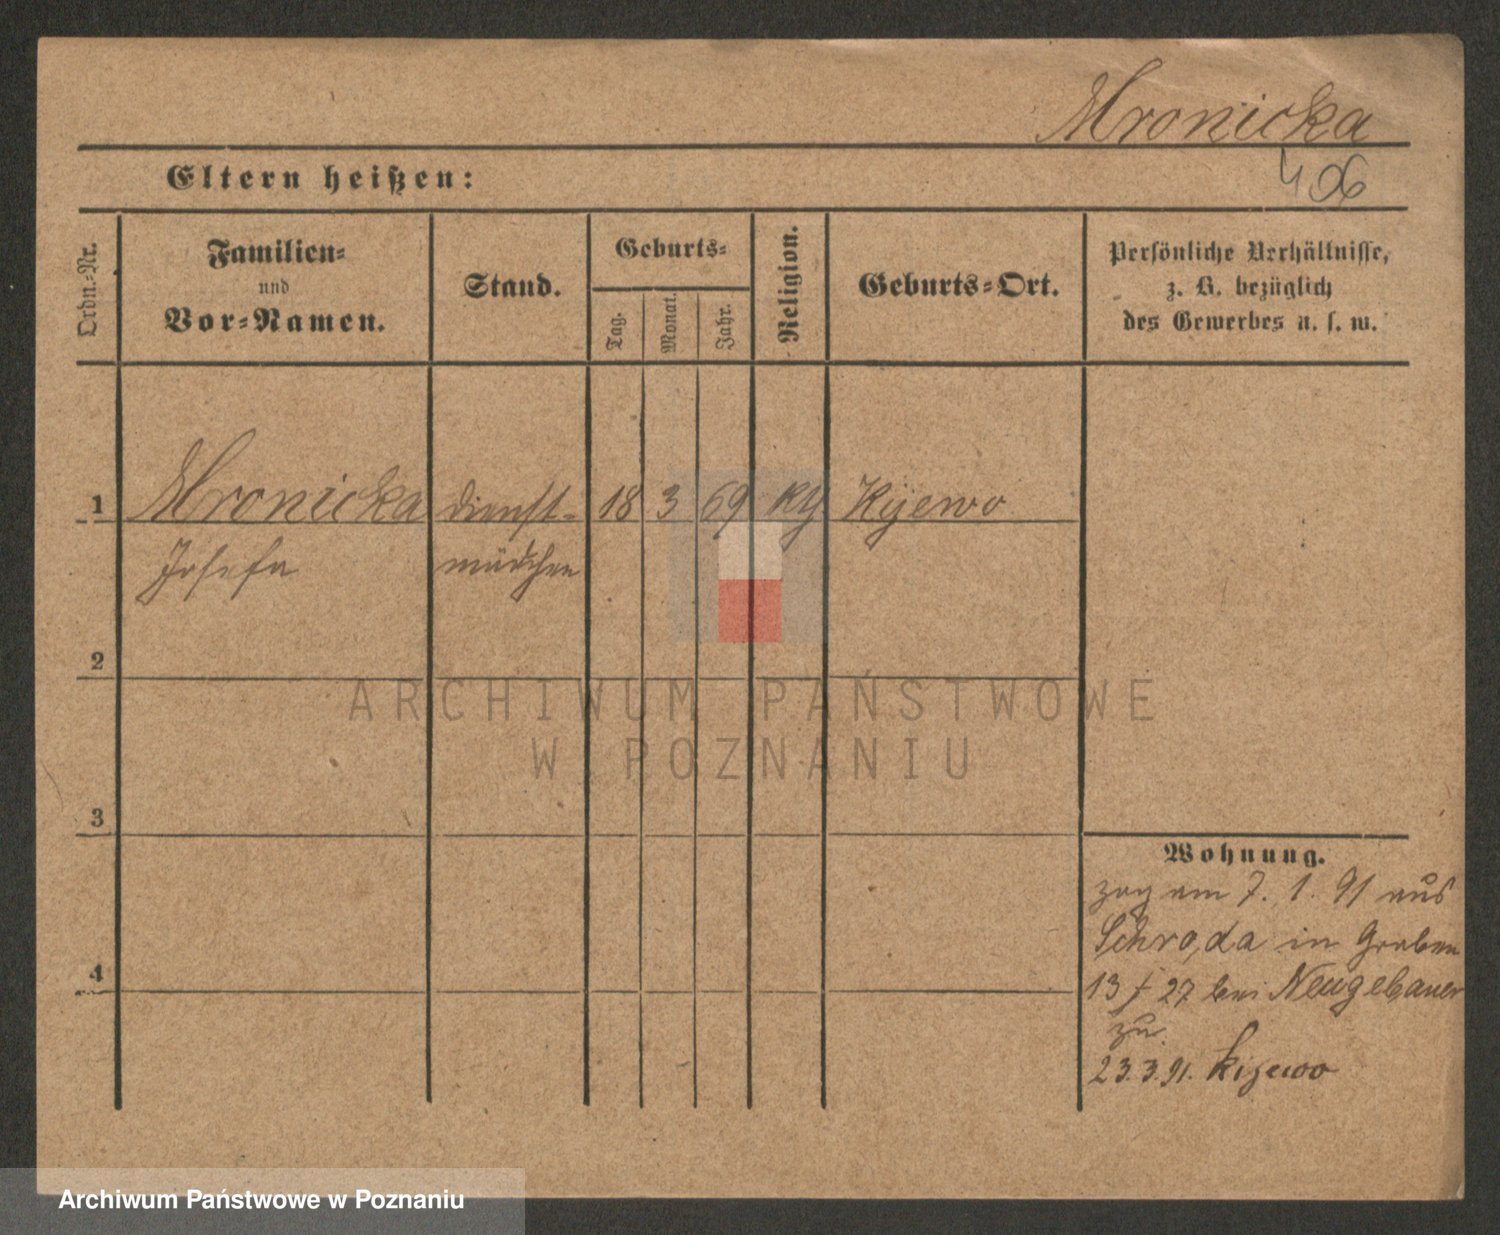 Mronicka
406
Eltern heißen:
Ordn.-Nr.
Familien-
und
Vor-Namen.
Stand.
Geburts-
Tag.
Monat.
Jahr.
Religion.
Geburts-Ort.
Persönliche Verhältnisse,
z. B. bezüglich
des Gewerbes u. s. w.
1 Mronicka dienst- 18 3 69 Kijewo
Josefa mädchen
2
ARCHIWUM PAŃSTWOWE
W POZNANIU
3
Wohnung.
zog am 7. 1. 91 aus
Schroda in Graben
4
13 f 27 bei Neugebauer
zu
23.3.91. Kijewo
Archiwum Państwowe w Poznaniu